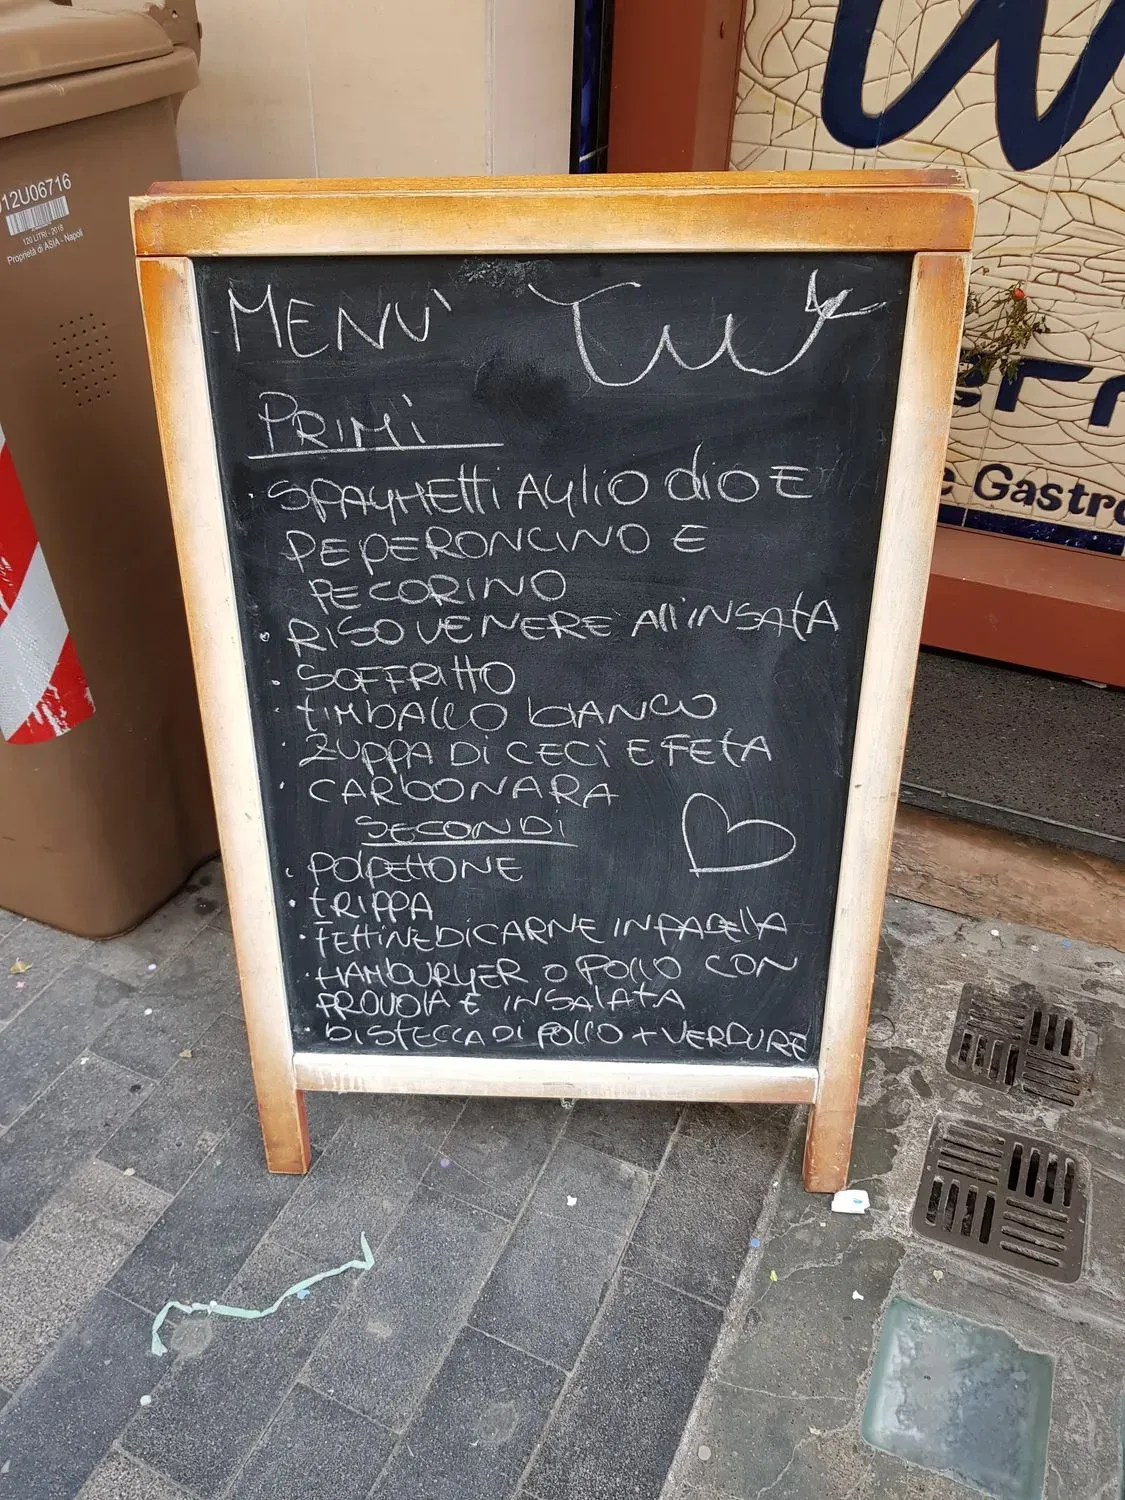 12U06716
120 LITRI - 2018
Proprietà di ASIA - Napoli
MENU'
PRIMI
· SPAGHETTI AGLIO dIO E
PEPERONCINO E
PECORINO
· RISO VENERE All'INSATA
· SOFFRITTO
· TIMBALLO bIANCO
· ZUPPA DI CECI E FETA
· CARBONARA
SECONDI
· POLPETTONE
· TRIPPA
· FETTINE DI CARNE IN PADELLA
· HAMBURGER O POLLO CON
PROVOLA E INSALATA
· BISTECCA DI POLLO + VERDURE
e Gastro